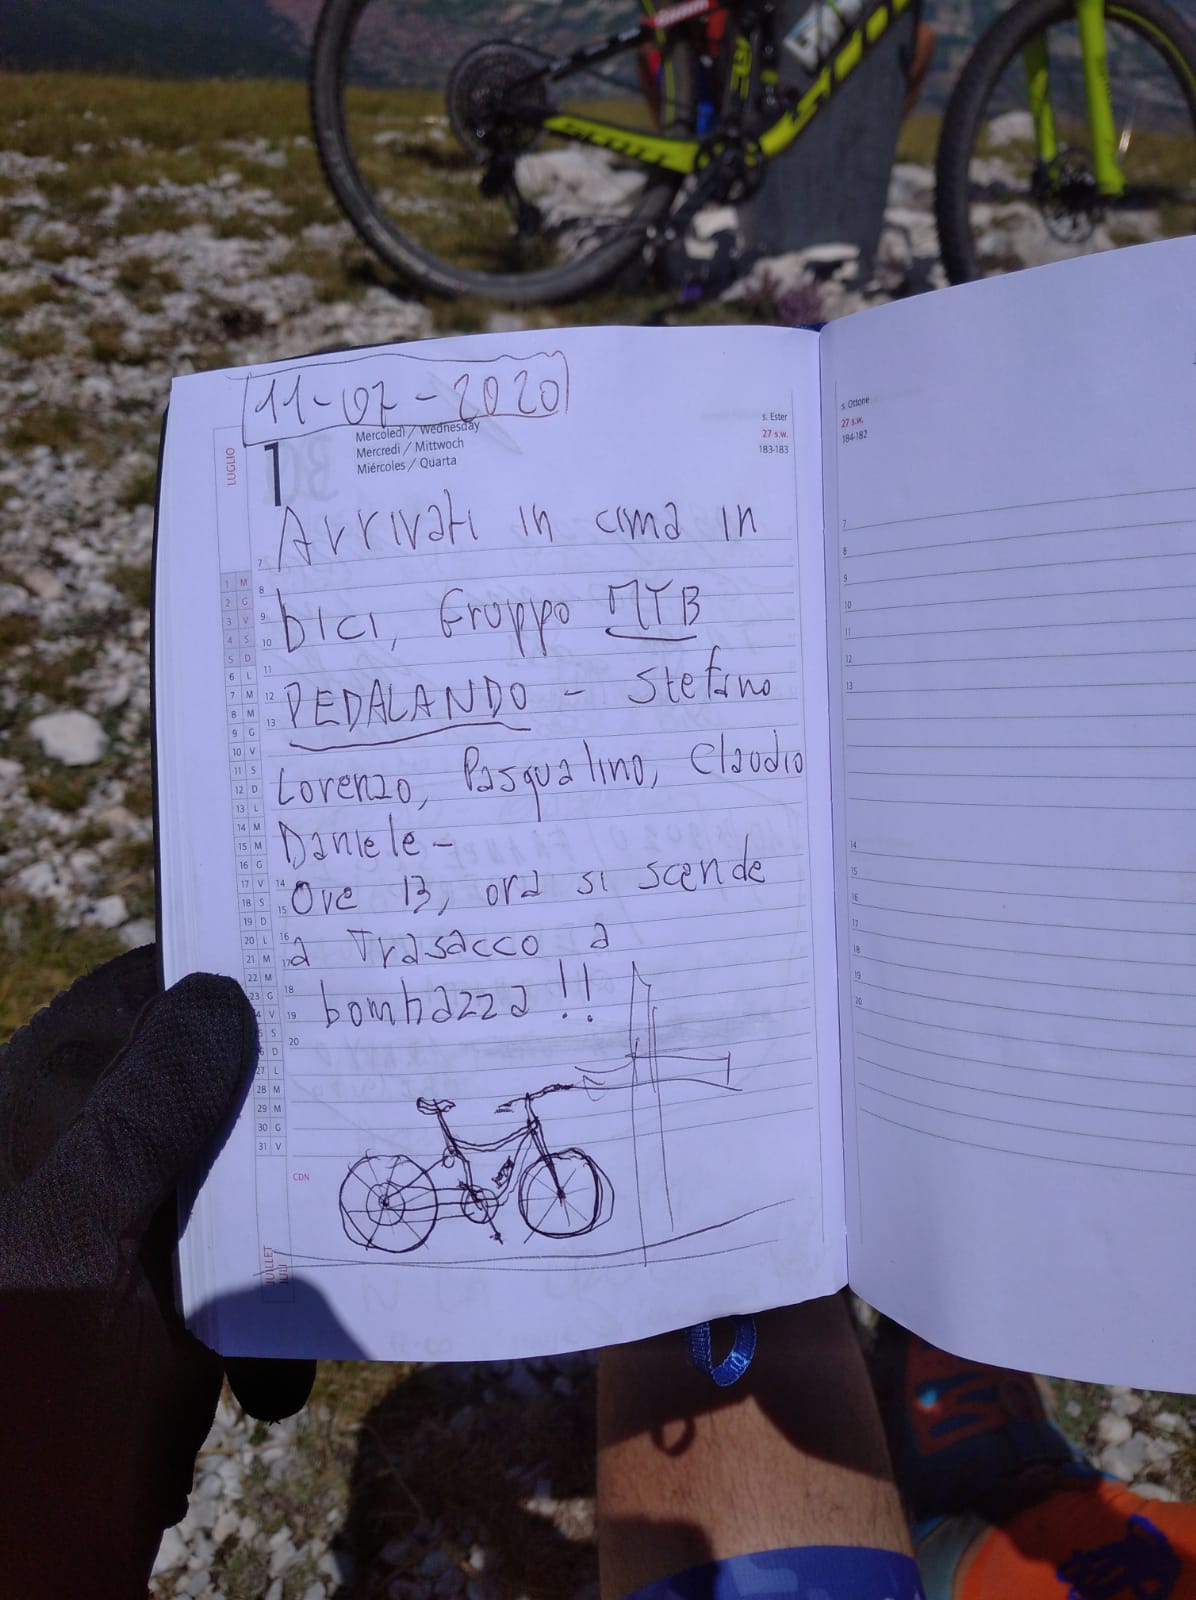 SCOTT
11-07-2020
LUGLIO
1
Mercoledì / Wednesday
Mercredi / Mittwoch
Miércoles / Quarta
s. Ester
27 s.w.
183-183
Arrivati in cima in
bici, Gruppo MTB
PEDALANDO - Stefano
Lorenzo, Pasqualino, Claudio
Daniele -
Ore 13, ora si scende
a Trasacco a
bombazza!!
7
8
9
10
11
12
13
14
15
16
17
18
19
20
1 M
2 G
3 V
4 S
5 D
6 L
7 M
8 M
9 G
10 V
11 S
12 D
13 L
14 M
15 M
16 G
17 V
18 S
19 D
20 L
21 M
22 M
23 G
V
S
D
27 L
28 M
29 M
30 G
31 V
CDN
JUILLET
JULI
s. Ottone
27 s.w.
184-182
7
8
9
10
11
12
13
14
15
16
17
18
19
20